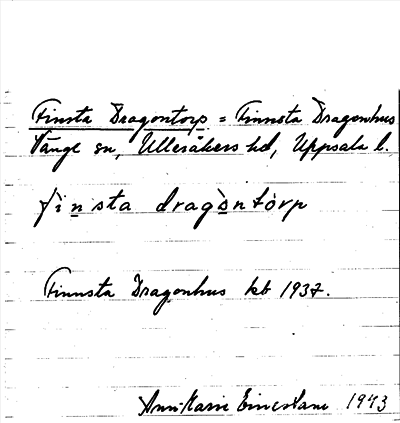 Finsta Dragontorp = Finnsta Dragonhus
Vänge sn, Ulleråkers hd, Uppsala l.
finsta dragòntórp
Finnsta Dragonhus kb 1937.
Ann-Marie 1943